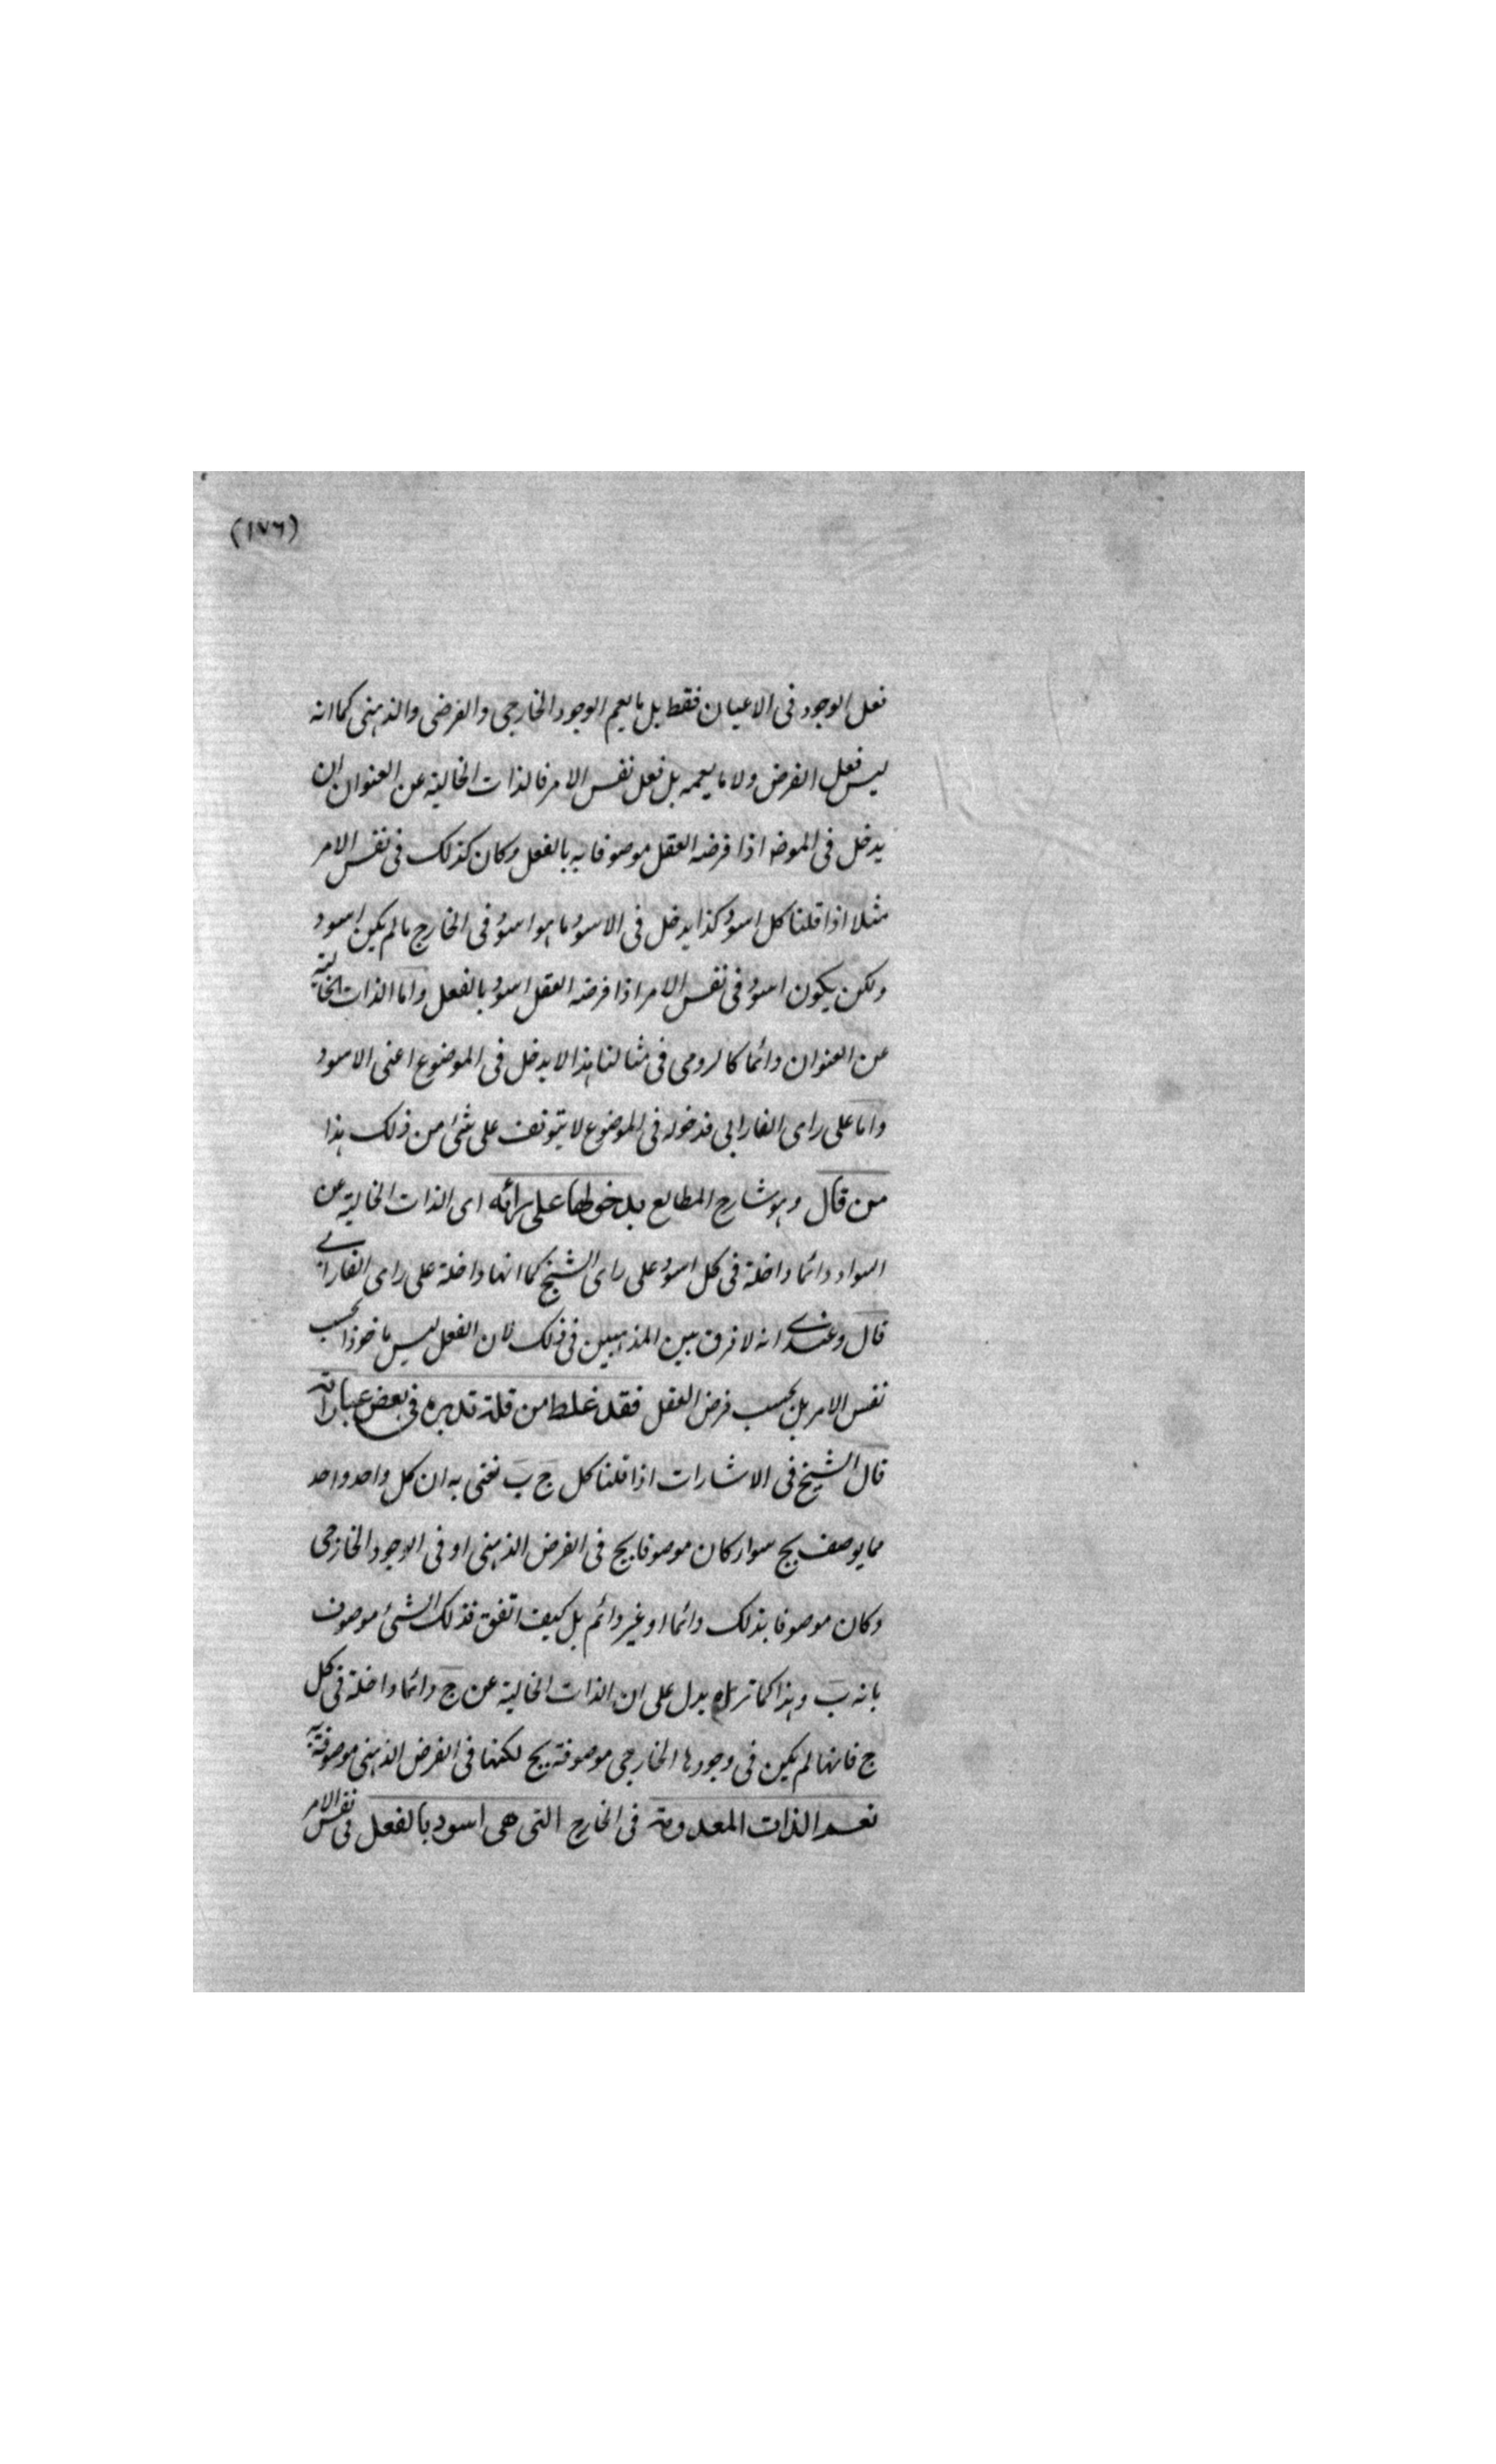 (١٧٦)
فعل الوجود فى الاعيان فقط بل ما يعم الوجود الخارجى والفرضى والذهنى كما انه
ليس فعل الفرض ولا ما يعمه بل فعل نفس الامر فالذات الخالية عن العنوان ان
يدخل فى الموضـ اذا فرضه العقل موصوفا به بالفعل وكان كذلك فى نفس الامر
مثلا اذا قلنا كل اسود كذا يدخل فى الاسود ما هو اسود فى الخارج ما لم يكن اسود
ولكن يكون اسود فى نفس الامر اذا فرضه العقل اسود بالفعل واما الذات الخالية
عن العنوان دائما كالرومى فى مثالنا هذا لا يدخل فى الموضوع اعنى الاسود
واما على راى الفارابى فدخوله فى الموضوع لا يتوقف على شئ من ذلك هذا
من قال وهو شارح المطالع بدخولها على رائه اى الذات الخالية عن
السواد دائما داخلة فى كل اسود على راى الشيخ كما انها داخلة على راى الفارابے
قال وعندے انه لا فرق بين المذهبين فى ذلك لان الفعل ليس ماخوذا بحسب
نفس الامر بل بحسب فرض العقل فقد غلط من قلة تدبره فى بعض عباراته
قال الشيخ فى الاشارات اذا قلنا كل ج ب نعنى به ان كل واحد واحد
مما يوصف بج سواء كان موصوفا بج فى الفرض الذهنى او فى الوجود الخارجى
وكان موصوفا بذلك دائما او غير دائم بل كيف اتفق فذلك الشئ موصوف
بانه ب وهذا كما تراه يدل على ان الذات الخالية عن ج دائما داخلة فى كل
ج فانها لم يكن فى وجودها الخارجى موصوفة بج لكنها فى الفرض الذهنى موصوفة به
نعم الذات المعدومة فى الخارج التى هى اسود بالفعل فى نفس الامر